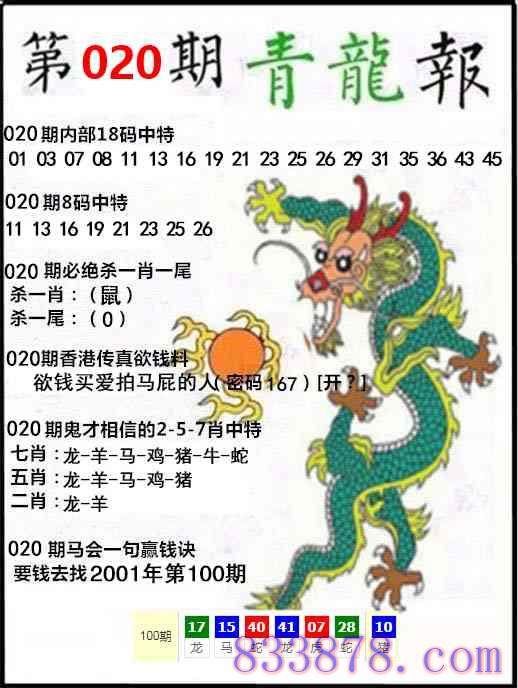 第020期青龍報
020期内部18码中特
01 03 07 08 11 13 16 19 21 23 25 26 29 31 35 36 43 45
020期8码中特
11 13 16 19 21 23 25 26
020 期必绝杀一肖一尾
杀一肖：（鼠）
杀一尾：（0）
020期香港传真欲钱料
欲钱买爱拍马屁的人(密码167) [开？]
020期鬼才相信的2-5-7肖中特
七肖：龙-羊-马-鸡-猪-牛-蛇
五肖：龙-羊-马-鸡-猪
二肖：龙-羊
020 期马会一句赢钱诀
要钱去找2001年第100期
100期 17 15 40 41 07 28 10
龙 马 蛇 龙 虎 蛇 猪
833878.com